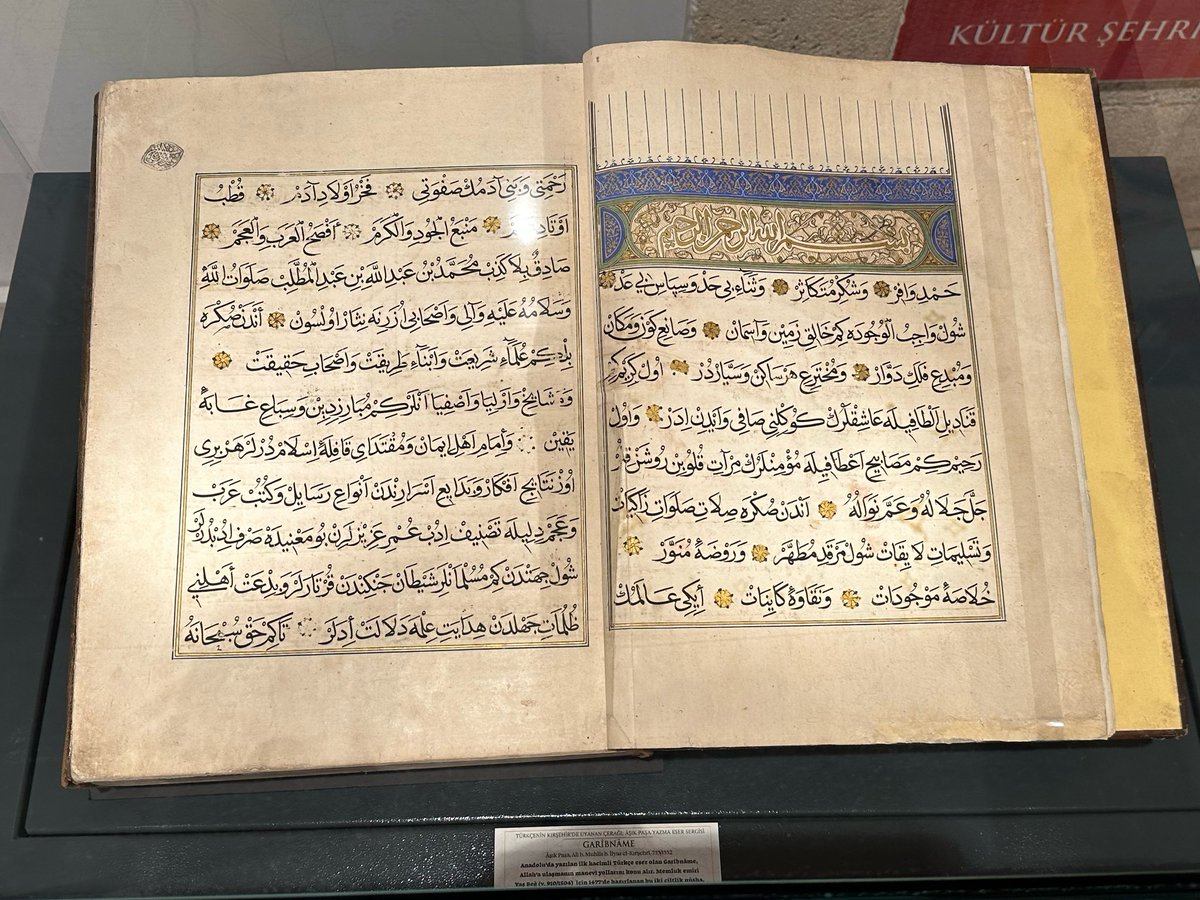 KÜLTÜR ŞEHRİ
بسم الله الرحمن الرحيم
حَمْدِ وَافِرْ وَشُكْرِ مُتَكَاثِرْ وَثَنَاءِ بِى حَدْ وَسِپَاسِ بِى عَدْ
شُولْ وَاجِبُ الْوُجُودَه كِمْ خَالِقِ زَمِينْ وَآسِمَانْ وَصَانِعِ كَوْنُ وَمَكَانْ
وَمُبْدِعِ فَلَكِ دَوَّارْ وَمُخْتَرِعِ هَرْ سَاكِنْ وَسَيَّارْدُرْ اُولْ كَرِيمْ كِمْ
قَنَادِيلِ اَلْطَافِيلَه عَاشِقْلَرُكْ كُوكُلْنِى صَافِى وَآيْدِينْ اِدَرْ وَاُولْ
رَحِيمْ كِمْ مَصَابِيحِ اَعْطَافِيلَه مُؤْمِنْلَرُكْ مِرْآتِ قُلُوبِنْ رُوشَنْ قِلُرْ
جَلَّ جَلَالُهُ وَعَمَّ نَوَالُهُ آنْدَنْ صُكْرَه صِلَاتِ صَلَوَاتِ زَاكِيَاتْ
وَتَسْلِيمَاتِ لَايِقَاتْ شُولْ مَرْقَدِ مُطَهَّرْ وَرَوْضَۀ مُنَوَّرْ
خُلَاصَۀ مَوْجُودَاتْ وَنَقَاوَۀ كَايِنَاتْ اِيكِى عَالَمُكْ
رَحْمَتِى وَبَنِى آدَمُكْ صَفْوَتِى فَخْرِ اَوْلَادِ آدَمْ قُطْبِ
اَوْتَادِ مَنْبَعِ الْجُودِ وَالْكَرَمْ اَفْصَحِ الْعَرَبِ وَالْعَجَمْ
صَادِقِ بِلَا كَذِبْ مُحَمَّدُ بْنُ عَبْدِ اللّٰهِ بْنِ عَبْدِ الْمُطَّلِبْ صَلَوَاتُ اللّٰهِ
وَسَلَامُهُ عَلَيْهِ وَآلِى وَاَصْحَابِى اُزَرِنَه نِثَارْ اُولْسُونْ آنْدَنْ صُكْرَه
بِلْكِمْ عُلَمَآءِ شَرِيعَتْ وَاَبْنَآءِ طَرِيقَتْ وَاَصْحَابِ حَقِيقَتْ
وَمَشَايِخْ وَاَوْلِيَا وَاَصْفِيَا آنْلَرْ كِمْ مُبَارِزِ دِينْ وَسِبَاعِ غَابَۀ
يَقِينْ وَاِمَامِ اَهْلِ اِيمَانْ وَمُقْتَدَاىِ قَافِلَۀ اِسْلَامْدُرْلَرْ هَرْ بِرِى
اُوزْ نَتَايِجِ اَفْكَارْ وَبَدَايِعِ اَسْرَارِنْدَنْ اَنْوَاعِ رَسَايِلْ وَكُتُبْ عَرَبْ
وَعَجَمْ دِيلِيلَه تَصْنِيفْ اِدُبْ عُمْرِ عَزِيزْلَرِنْ بُو مَعْنِيدَه صَرْفْ اِدُبْدُرْلَرْ
شُولْ جِهَتْدَنْ كِمْ مُسُلْمَانْلَرْ شَيْطَانْ جَنْكِنْدَنْ قُرْتَارَلَرْ وَبِدْعَتْ اَهْلِنِى
ظُلُمَاتِ جَهِلْدَنْ هِدَايَتِ عِلْمَه دَلَالَتْ اِدَلَرْ تَاكِمْ حَقْ سُبْحَانَهُ
TÜRKÇENİN KIRŞEHİR'DE UYANAN ÇERAĞI; ÂŞIK PAŞA YAZMA ESER SERGİSİ
GARİBNÂME
Âşık Paşa, Ali b. Muhlis b. İlyas el-Kırşehrî, 733/1332
Anadolu'da yazılan ilk hacimli Türkçe eser olan Garibnâme,
Allah'a ulaşmanın manevi yollarını konu alır. Memluk emiri
Yaş Beğ (v. 910/1504) için 1477'de hazırlanan bu iki ciltlik nüsha,